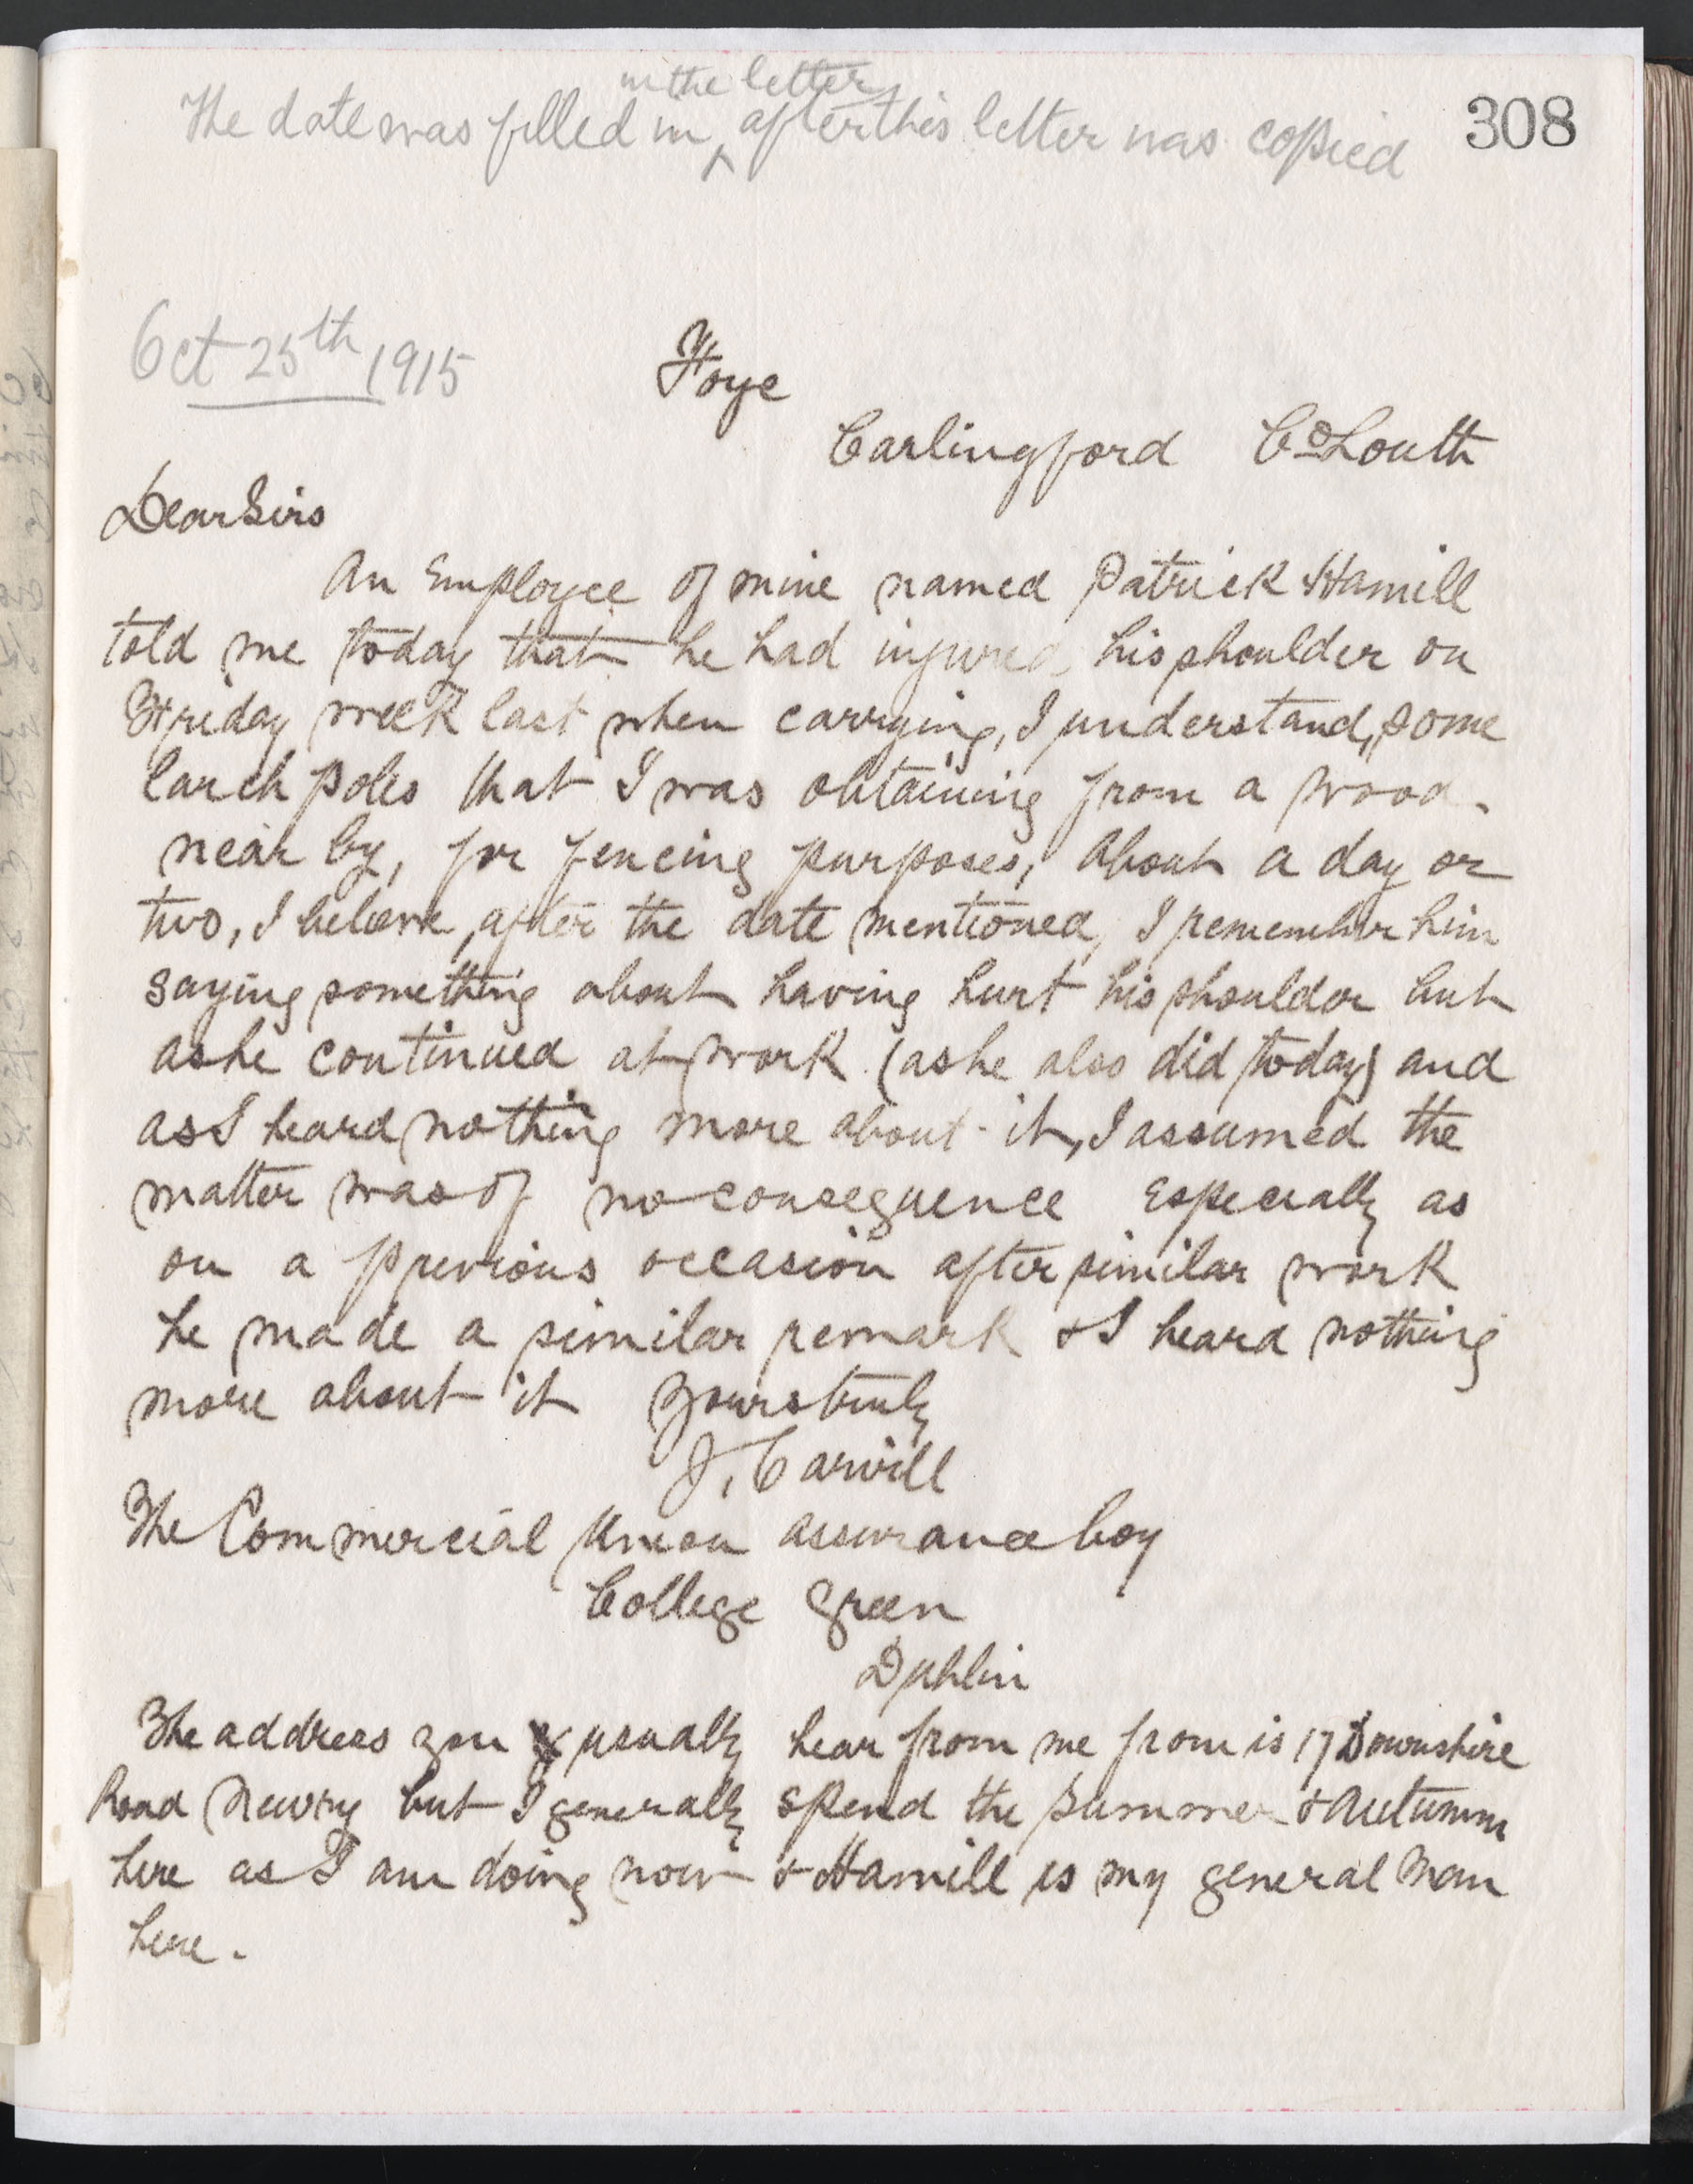 in the letter
The date was filled in ^ after this letter was copied
308
Oct 25th 1915
Foye
Carlingford Co Louth
Dear Sirs
An Employee of mine named Patrick Hamill
told me today that he had injured his shoulder on
Friday week last when carrying, I understand, some
larch poles that I was obtaining from a wood
near by, for fencing purposes, About a day or
two, I believe, after the date mentioned, I remember him
saying something about having hurt his shoulder but
as he continued at work (as he also did today) and
as I heard nothing more about it, I assumed the
matter was of no consequence Especially as
on a previous occasion after similar work
he made a similar remark & I heard nothing
more about it Yours truly
J. Carvill
The Commercial Union Assurance Coy
College Green
Dublin
The address you usually hear from me from is 17 Downshire
Road Newry but I generally spend the summer & Autumn
here as I am doing now & Hamill is my general man
here.